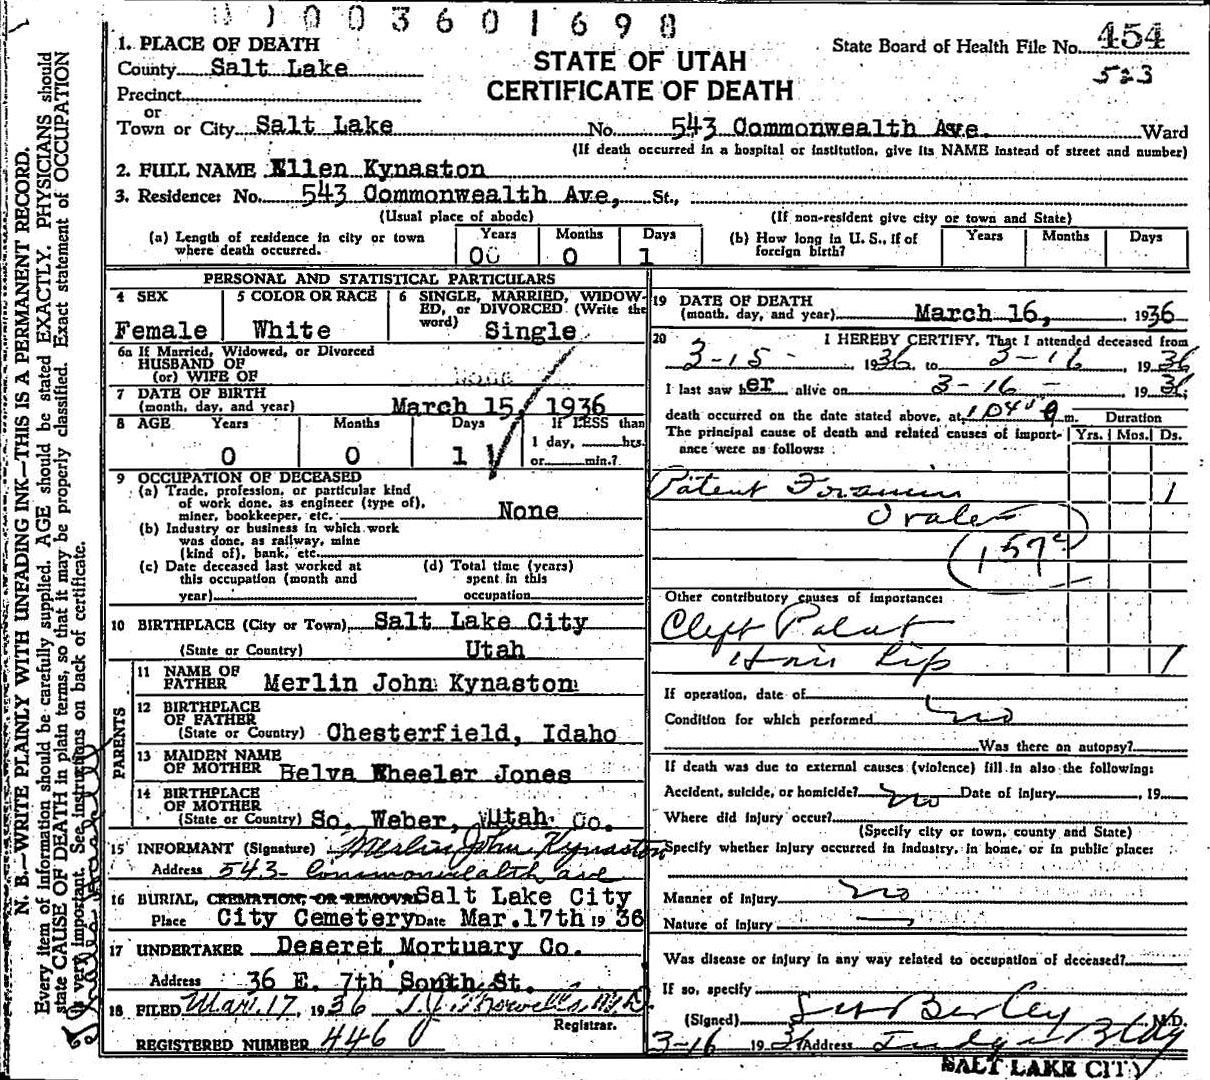 003601698
1. PLACE OF DEATH
County Salt Lake
Precinct
or
Town or City Salt Lake No. 543 Commonwealth Ave. Ward
STATE OF UTAH
CERTIFICATE OF DEATH
State Board of Health File No. 454
523
(If death occurred in a hospital or institution, give its NAME instead of street and number)
2. FULL NAME Ellen Kynaston
3. Residence: No. 543 Commonwealth Ave, St.,
(Usual place of abode)
(If non-resident give city or town and State)
(a) Length of residence in city or town where death occurred. Years 00 Months 0 Days 1
(b) How long in U. S., if of foreign birth? Years Months Days
PERSONAL AND STATISTICAL PARTICULARS
4 SEX
Female
5 COLOR OR RACE
White
6 SINGLE, MARRIED, WIDOW-
ED, or DIVORCED (Write the
word) Single
6a If Married, Widowed, or Divorced
HUSBAND OF
(or) WIFE OF
7 DATE OF BIRTH
(month, day, and year) March 15, 1936
8 AGE Years Months Days If LESS than
1 day, hrs.
or min.?
0 0 1
9 OCCUPATION OF DECEASED
(a) Trade, profession, or particular kind
of work done, as engineer (type of),
miner, bookkeeper, etc. None
(b) Industry or business in which work
was done, as railway, mine
(kind of), bank, etc.
(c) Date deceased last worked at
this occupation (month and
year)
(d) Total time (years)
spent in this
occupation
10 BIRTHPLACE (City or Town) Salt Lake City
(State or Country) Utah
PARENTS
11 NAME OF
FATHER Merlin John Kynaston
12 BIRTHPLACE
OF FATHER
(State or Country) Chesterfield, Idaho
13 MAIDEN NAME
OF MOTHER Belva Wheeler Jones
14 BIRTHPLACE
OF MOTHER
(State or Country) So. Weber, Utah Co.
15 INFORMANT (Signature) Merlin John Kynaston
Address 543- Commonwealth ave
16 BURIAL, CREMATION, OR REMOVAL Salt Lake City
Place City Cemetery Date Mar. 17th 19 36
17 UNDERTAKER Deseret Mortuary Co.
Address 36 E. 7th South St.
18 FILED Mar. 17, 1936 M.D.
Registrar.
REGISTERED NUMBER 446
19 DATE OF DEATH
(month, day, and year) March 16, 1936
20 I HEREBY CERTIFY, That I attended deceased from
3-15- 1936, to 3-16, 1936
I last saw her alive on 3-16- 1936;
death occurred on the date stated above, at m. Duration
The principal cause of death and related causes of import-
ance were as follows: Yrs. Mos. Ds.
Patent Foramin 1
Ovale
(157c)
Other contributory causes of importance:
Cleft Palat
Hair Lip 1
If operation, date of
Condition for which performed no
Was there an autopsy?
If death was due to external causes (violence) fill in also the following:
Accident, suicide, or homicide? no Date of injury , 19
Where did injury occur?
(Specify city or town, county and State)
Specify whether injury occurred in industry, in home, or in public place:
Manner of injury no
Nature of injury
Was disease or injury in any way related to occupation of deceased?
If so, specify
(Signed) M.D.
3-16 1936 Address Judge Bldg
SALT LAKE CITY
N. B.—WRITE PLAINLY WITH UNFADING INK—THIS IS A PERMANENT RECORD.
Every item of information should be carefully supplied. AGE should be stated EXACTLY. PHYSICIANS should
state CAUSE OF DEATH in plain terms, so that it may be properly classified. Exact statement of OCCUPATION
is very important. See instructions on back of certificate.